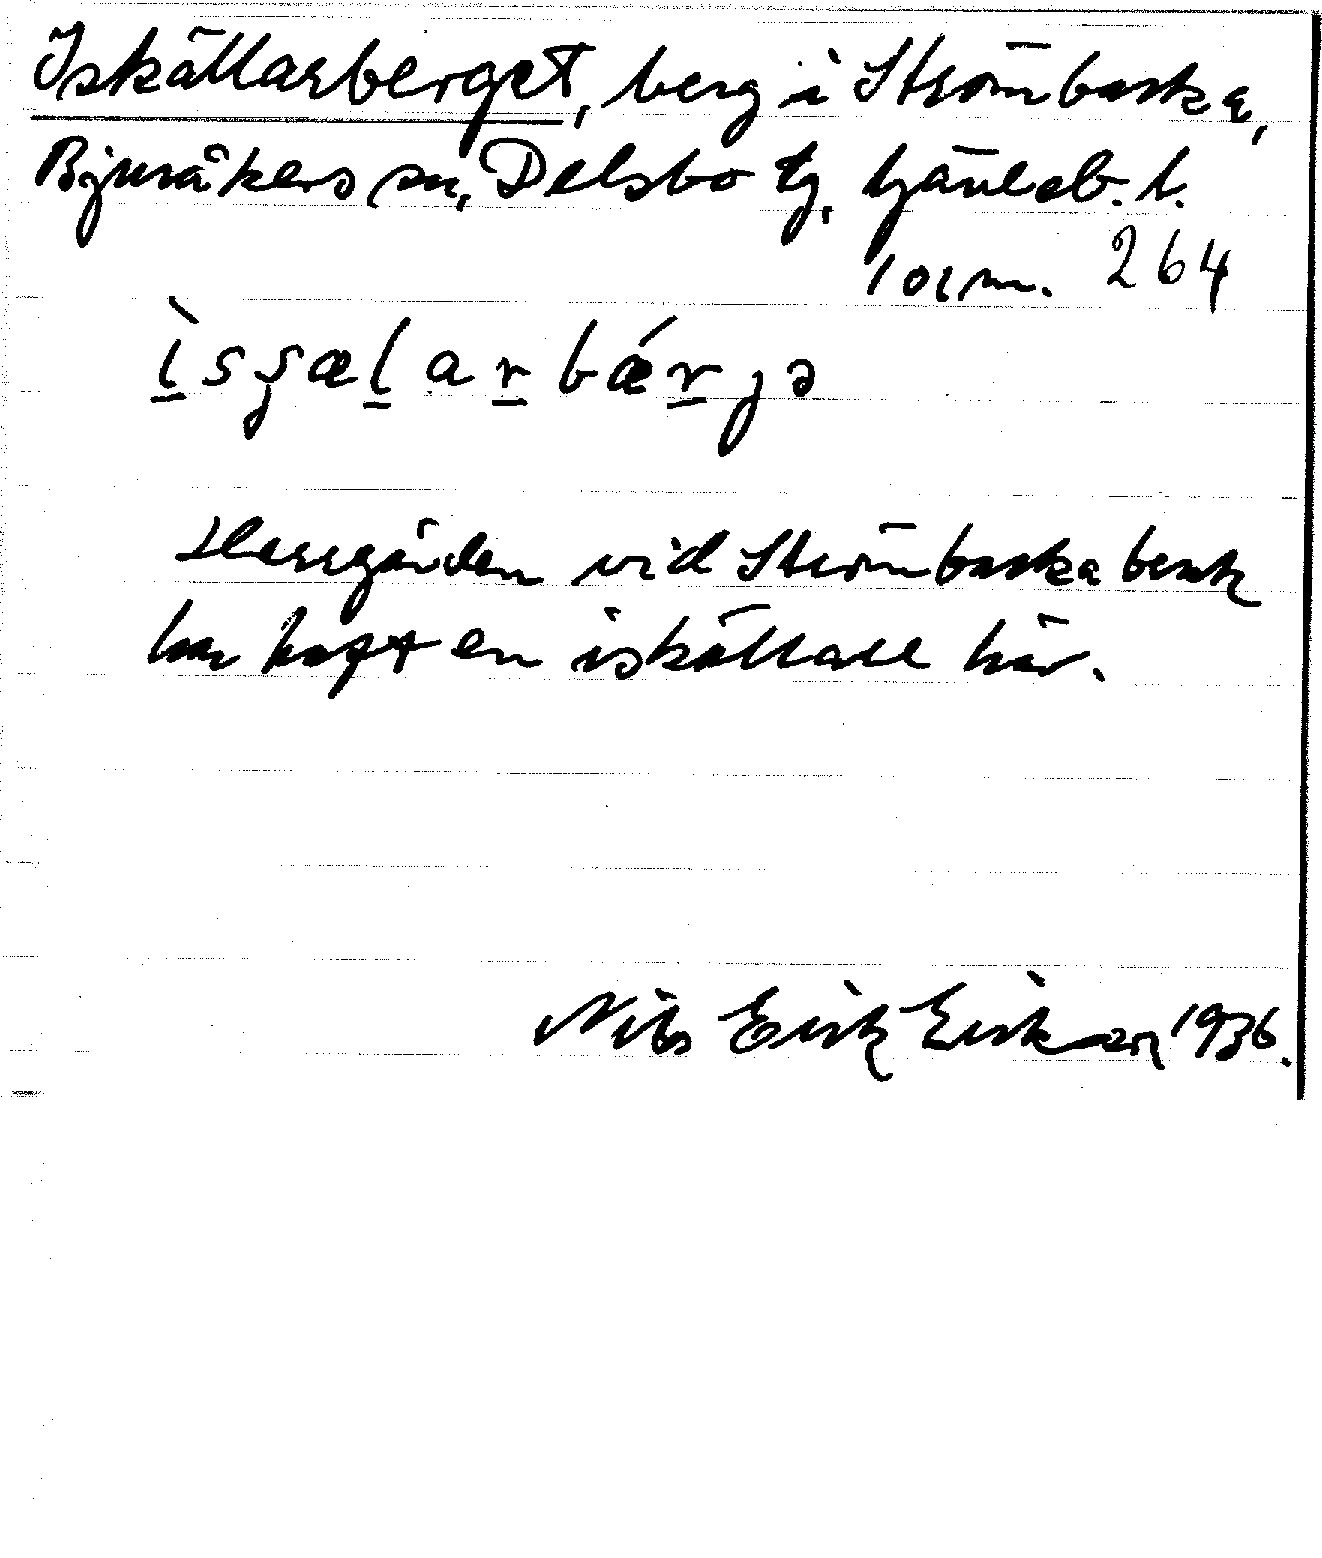 Iskällarberget, berg i Strömbacka,
Bjuråkers sn, Delsbo tg, Gävleb. l.
Torm. 264
ìsʂælarbǽrjə
Herrgården vid Strömbacka bruk
har haft en iskällare här.
Nils Erik Erikson 1936.